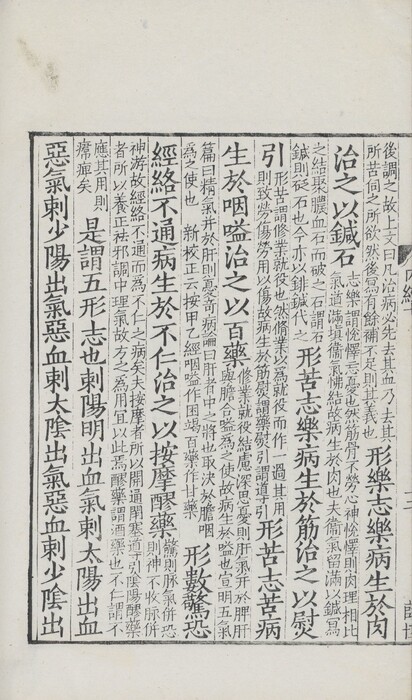 後調之故上文曰凡治病必先去其血乃去其
所苦伺之所欲然後寫有餘補不足則其義也
形樂志樂病生於肉
治之以鍼石
志樂謂悅懌志憂也然筋骨不勞心神悅懌則肉理相比
氣道滿填衛氣怫結故病生於肉也夫衛氣留滿以鍼寫
之結聚膿血石而破之石謂石
鍼則砭石也今亦以䤵鍼代之
形苦志樂病生於筋治之以熨
引
形苦謂修業就役也然修業以為就役而作一過其用
則致勞傷勞用以傷故病生於筋熨謂藥熨引謂導引
形苦志苦病
生於咽嗌治之以百藥
修業就役結慮深思憂則肝氣并於脾肝
與膽合嗌為之使故病生於嗌也宣明五氣
篇曰精氣并於肝則憂奇病論曰肝者中之將也取決於膽咽
為之使也 新校正云按甲乙經咽嗌作困竭百藥作甘藥
形數驚恐
經絡不通病生於不仁治之以按摩醪藥
驚則脈氣併恐
則神不收脈併
神游故經絡不通而為不仁之病矣夫按摩者所以開通閉塞導引陰陽醪藥
者所以養正祛邪調中理氣故方之為用宜以此焉醪藥謂酒藥也不仁謂不
應其用則
㿏痹矣
是謂五形志也刺陽明出血氣刺太陽出血
惡氣刺少陽出氣惡血刺太陰出氣惡血刺少陰出